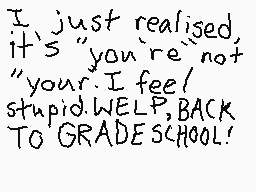 I just realised,
it's "you're" not
"your. I feel
stupid. WELP, BACK
TO GRADE SCHOOL!